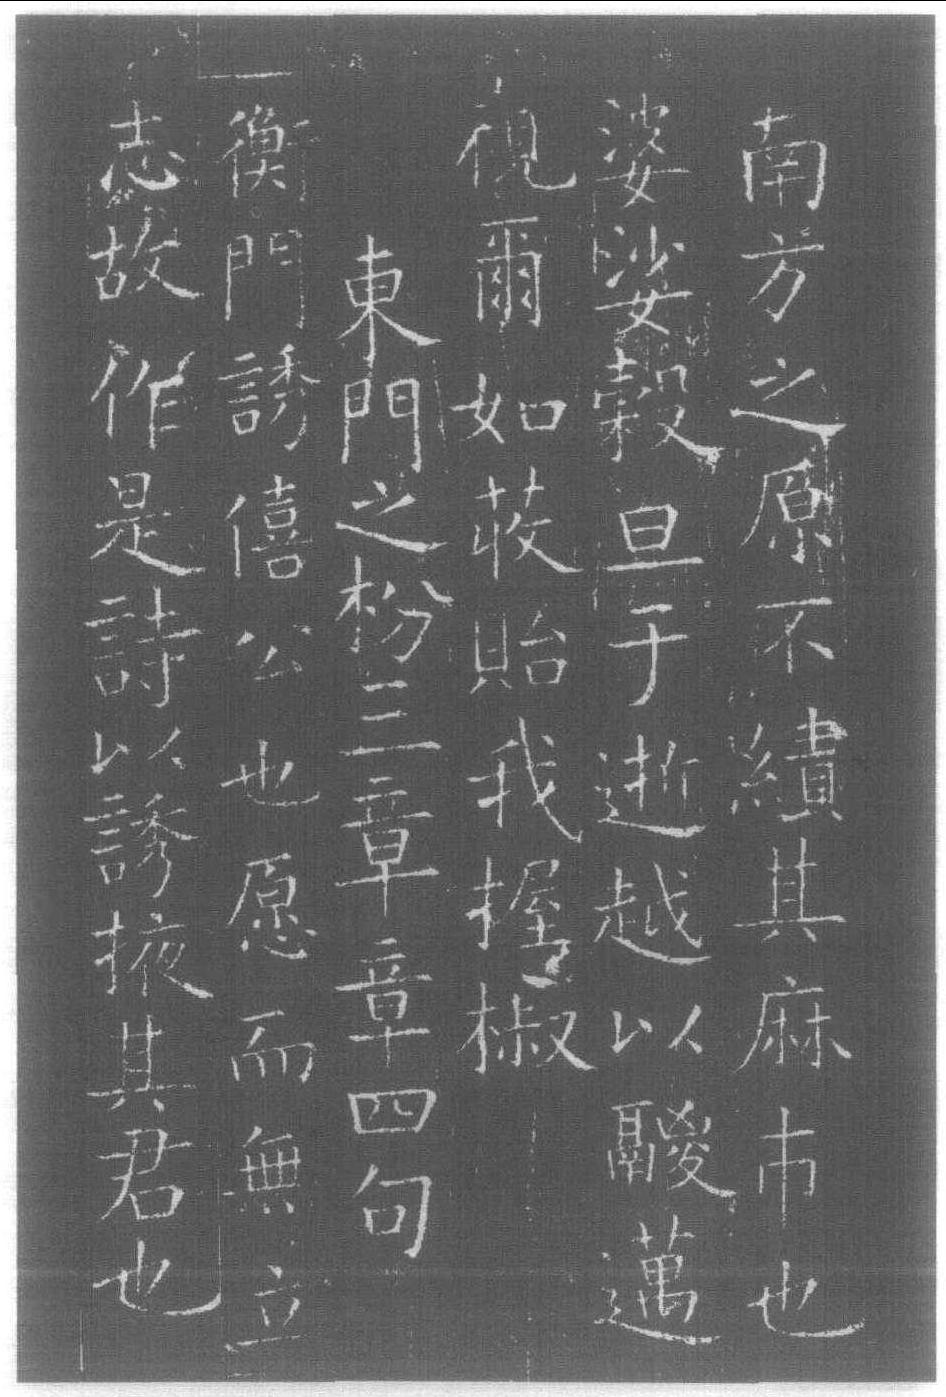 南方之原不績其麻市也
婆娑穀旦于逝越以鬷邁
視爾如荍貽我握椒
東門之枌三章章四句
衡門誘僖公也愿而無立
志故作是詩以誘掖其君也